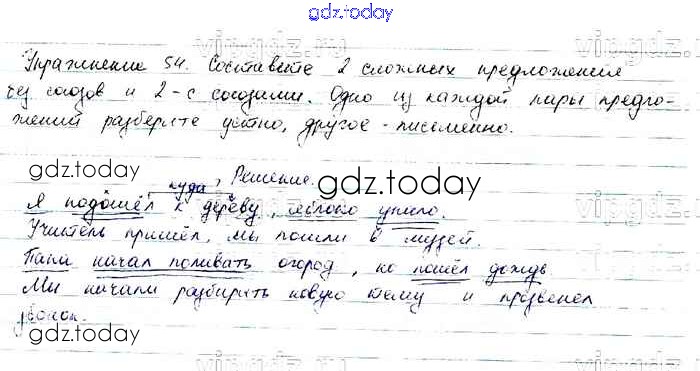 gdz.today
vipgdz.ru
Упражнение 54. Составьте 2 сложных предложения
без союзов и 2 - с союзами. Одно из каждой пары предло-
жений разберите устно, другое - письменно.
gdz.today
куда, Решение.
gdz.today
Я подошёл к дереву, яблоко упало.
Учитель пришёл, мы пошли в музей.
Папа начал поливать огород, но пошёл дождь
Мы начали разбирать новую тему и прозвенел
звонок.
gdz.today
vipgdz.ru